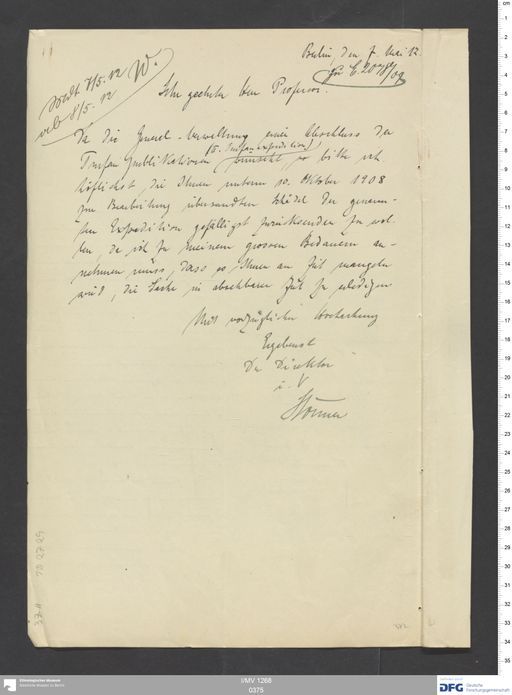 Berlin, den 7. Mai 12.
zu E. 2078/09
W.
8/5. 12
Sehr geehrter Herr Professor.
Da die General-Verwaltung einen Abschluss der
Turfan Publikationen (5. Turfanexpedition) wünscht, so bitte ich
höflichst die Ihnen unterm 10. Oktober 1908
zur Bearbeitung übersandten Schädel der genann-
ten Expedition gefälligst zurücksenden zu wol-
len, da ich zu meinem grossen Bedauern an-
nehmen muss, dass es Ihnen an Zeit mangeln
wird, die Sache in absehbarer Zeit zu erledigen
Mit vorzüglicher Hochachtung
Ergebenst
Der Direktor
i. V.
10 27 29
I/MV 1268
0375
Ethnologisches Museum
Staatliche Museen zu Berlin
DFG Deutsche
Forschungsgemeinschaft